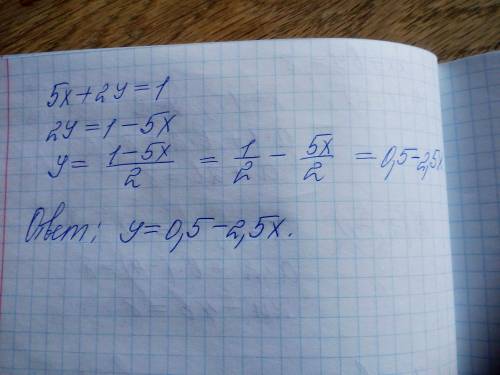 5x+2y=1
2y=1-5x
y= \frac{1-5x}{2} = \frac{1}{2} - \frac{5x}{2} = 0,5-2,5x
Ответ: y=0,5-2,5x.